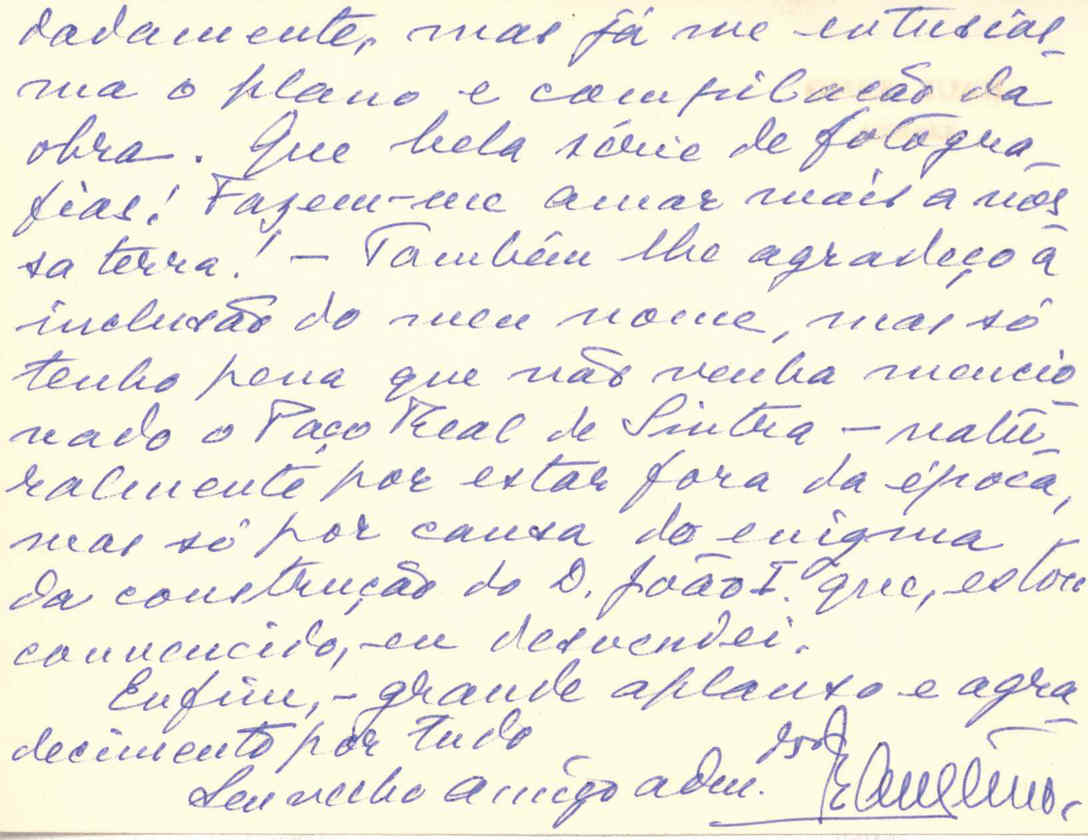 dadamente, mas já me entusias-
ma o plano e compilação da
obra. Que bela série de fotogra-
fias! Fazem-me amar mais a nos-
sa terra! – Também lhe agradeço a
inclusão do meu nome, mas só
tenho pena que não venha mencio
nado o Paço Real de Sintra – natu-
ralmente por estar fora da época,
mas só por causa do enigma
da construção do D. João I. que, estou
convencido, – eu desvendei.
Enfim, – grande aplauso e agra-
decimento por tudo
Seu velho amigo adm.